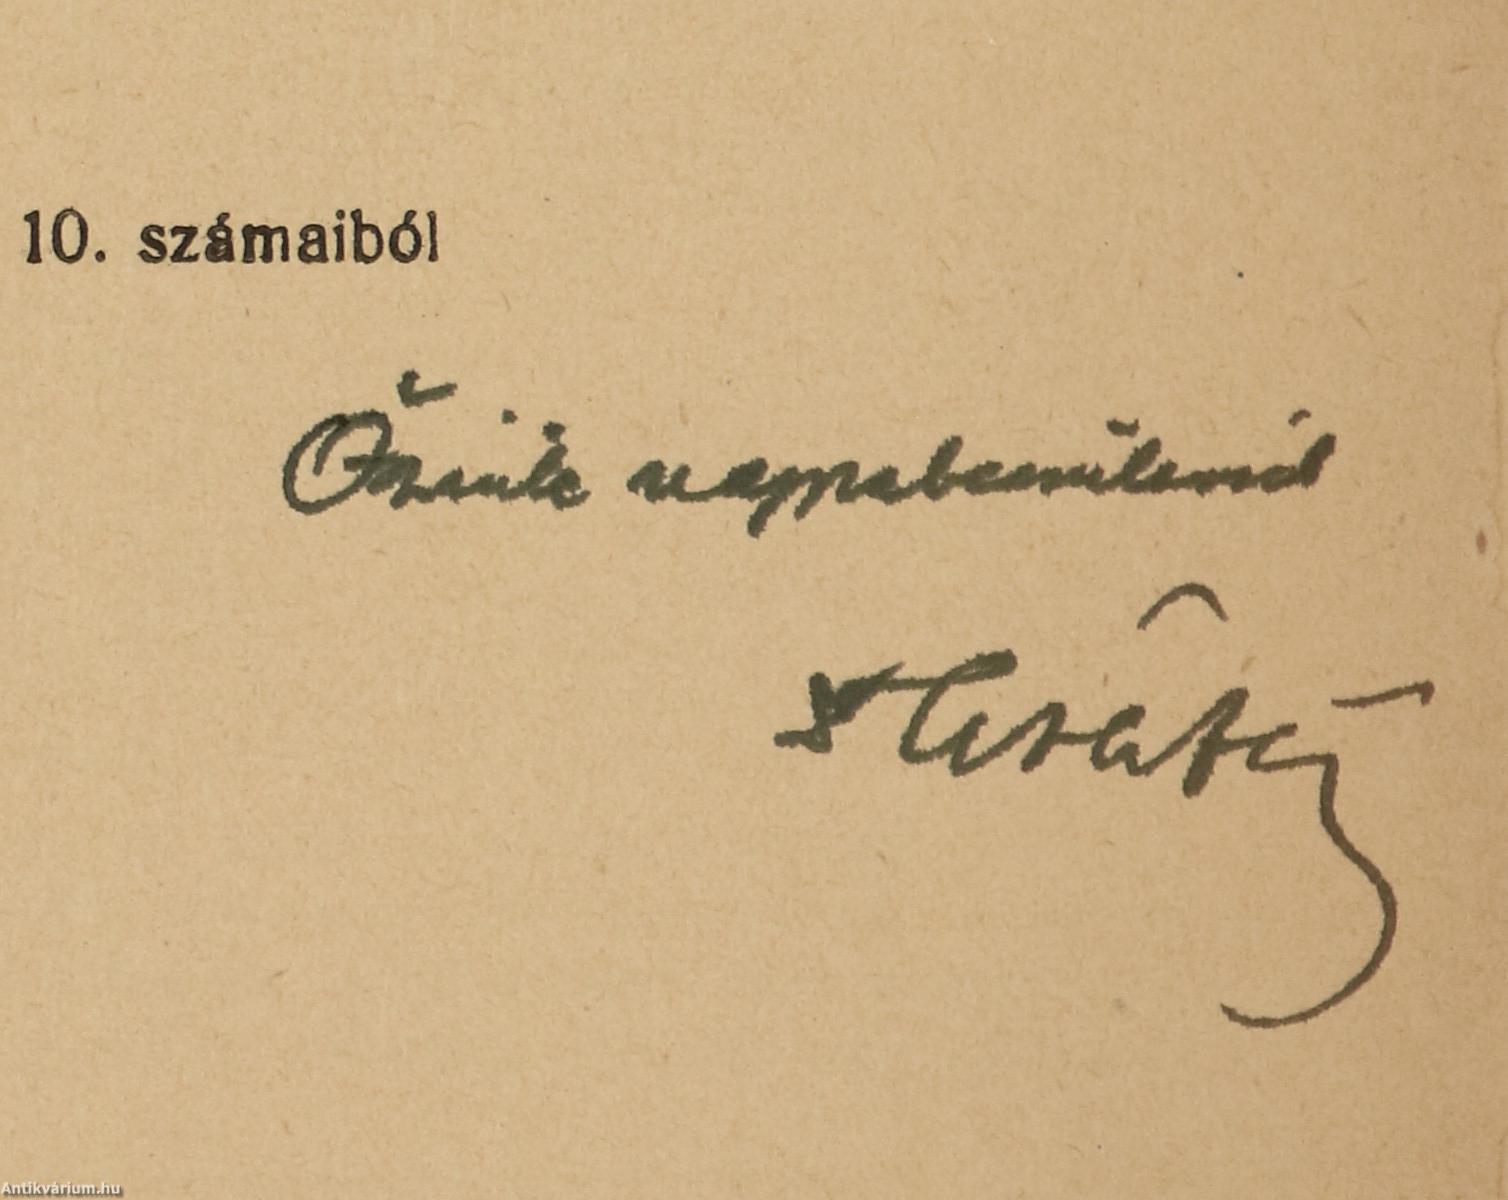 10. számaiból
Őszinte nagyrabecsüléssel
Antikvárium.hu